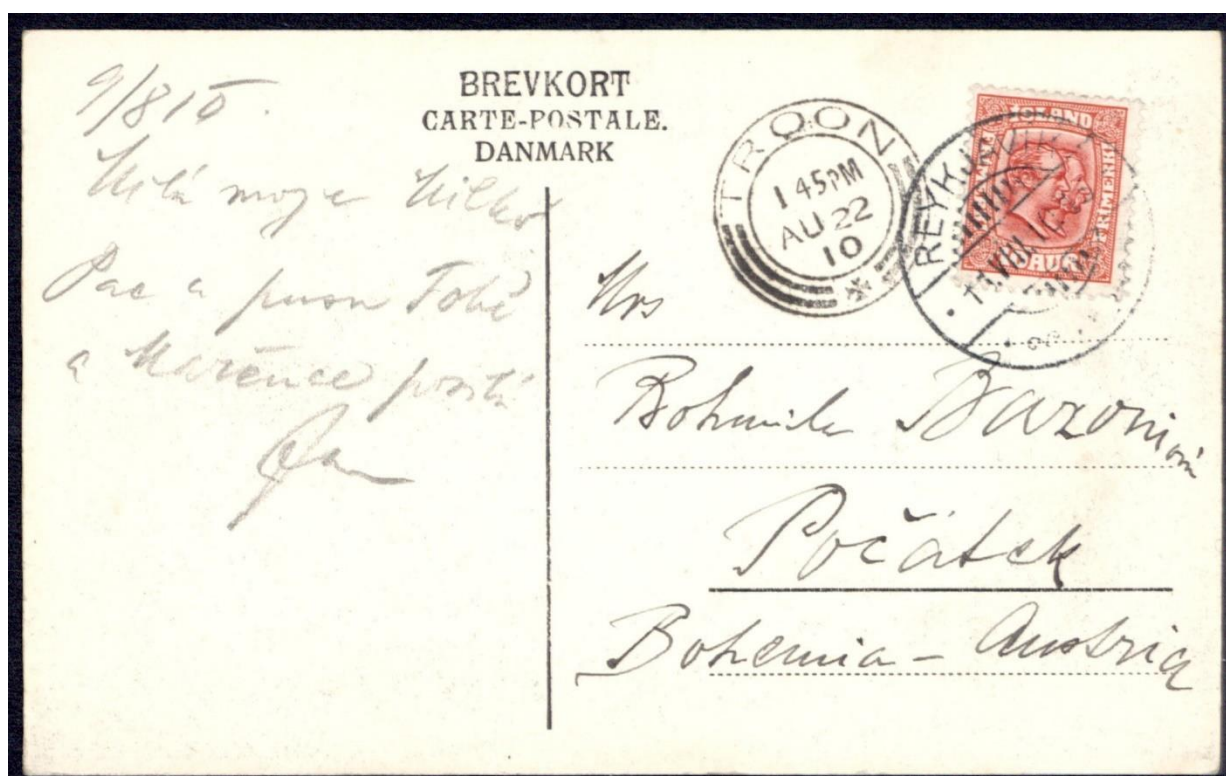 9/8 10.
Milá moje Milko
Pac a pusu Tobě
a Mařence posílá
Jan
BREVKORT
CARTE-POSTALE.
DANMARK
TROON
1 45 PM
AU 22
10
REYKJAVIK
ISLAND
AUR
Mrs
Bohumila
Počátek
Bohemia - Austria